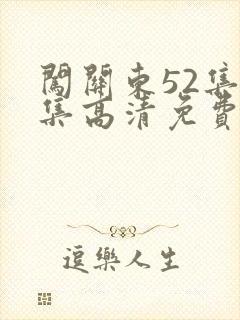 闖關東52集
集高清免費
逗樂人生